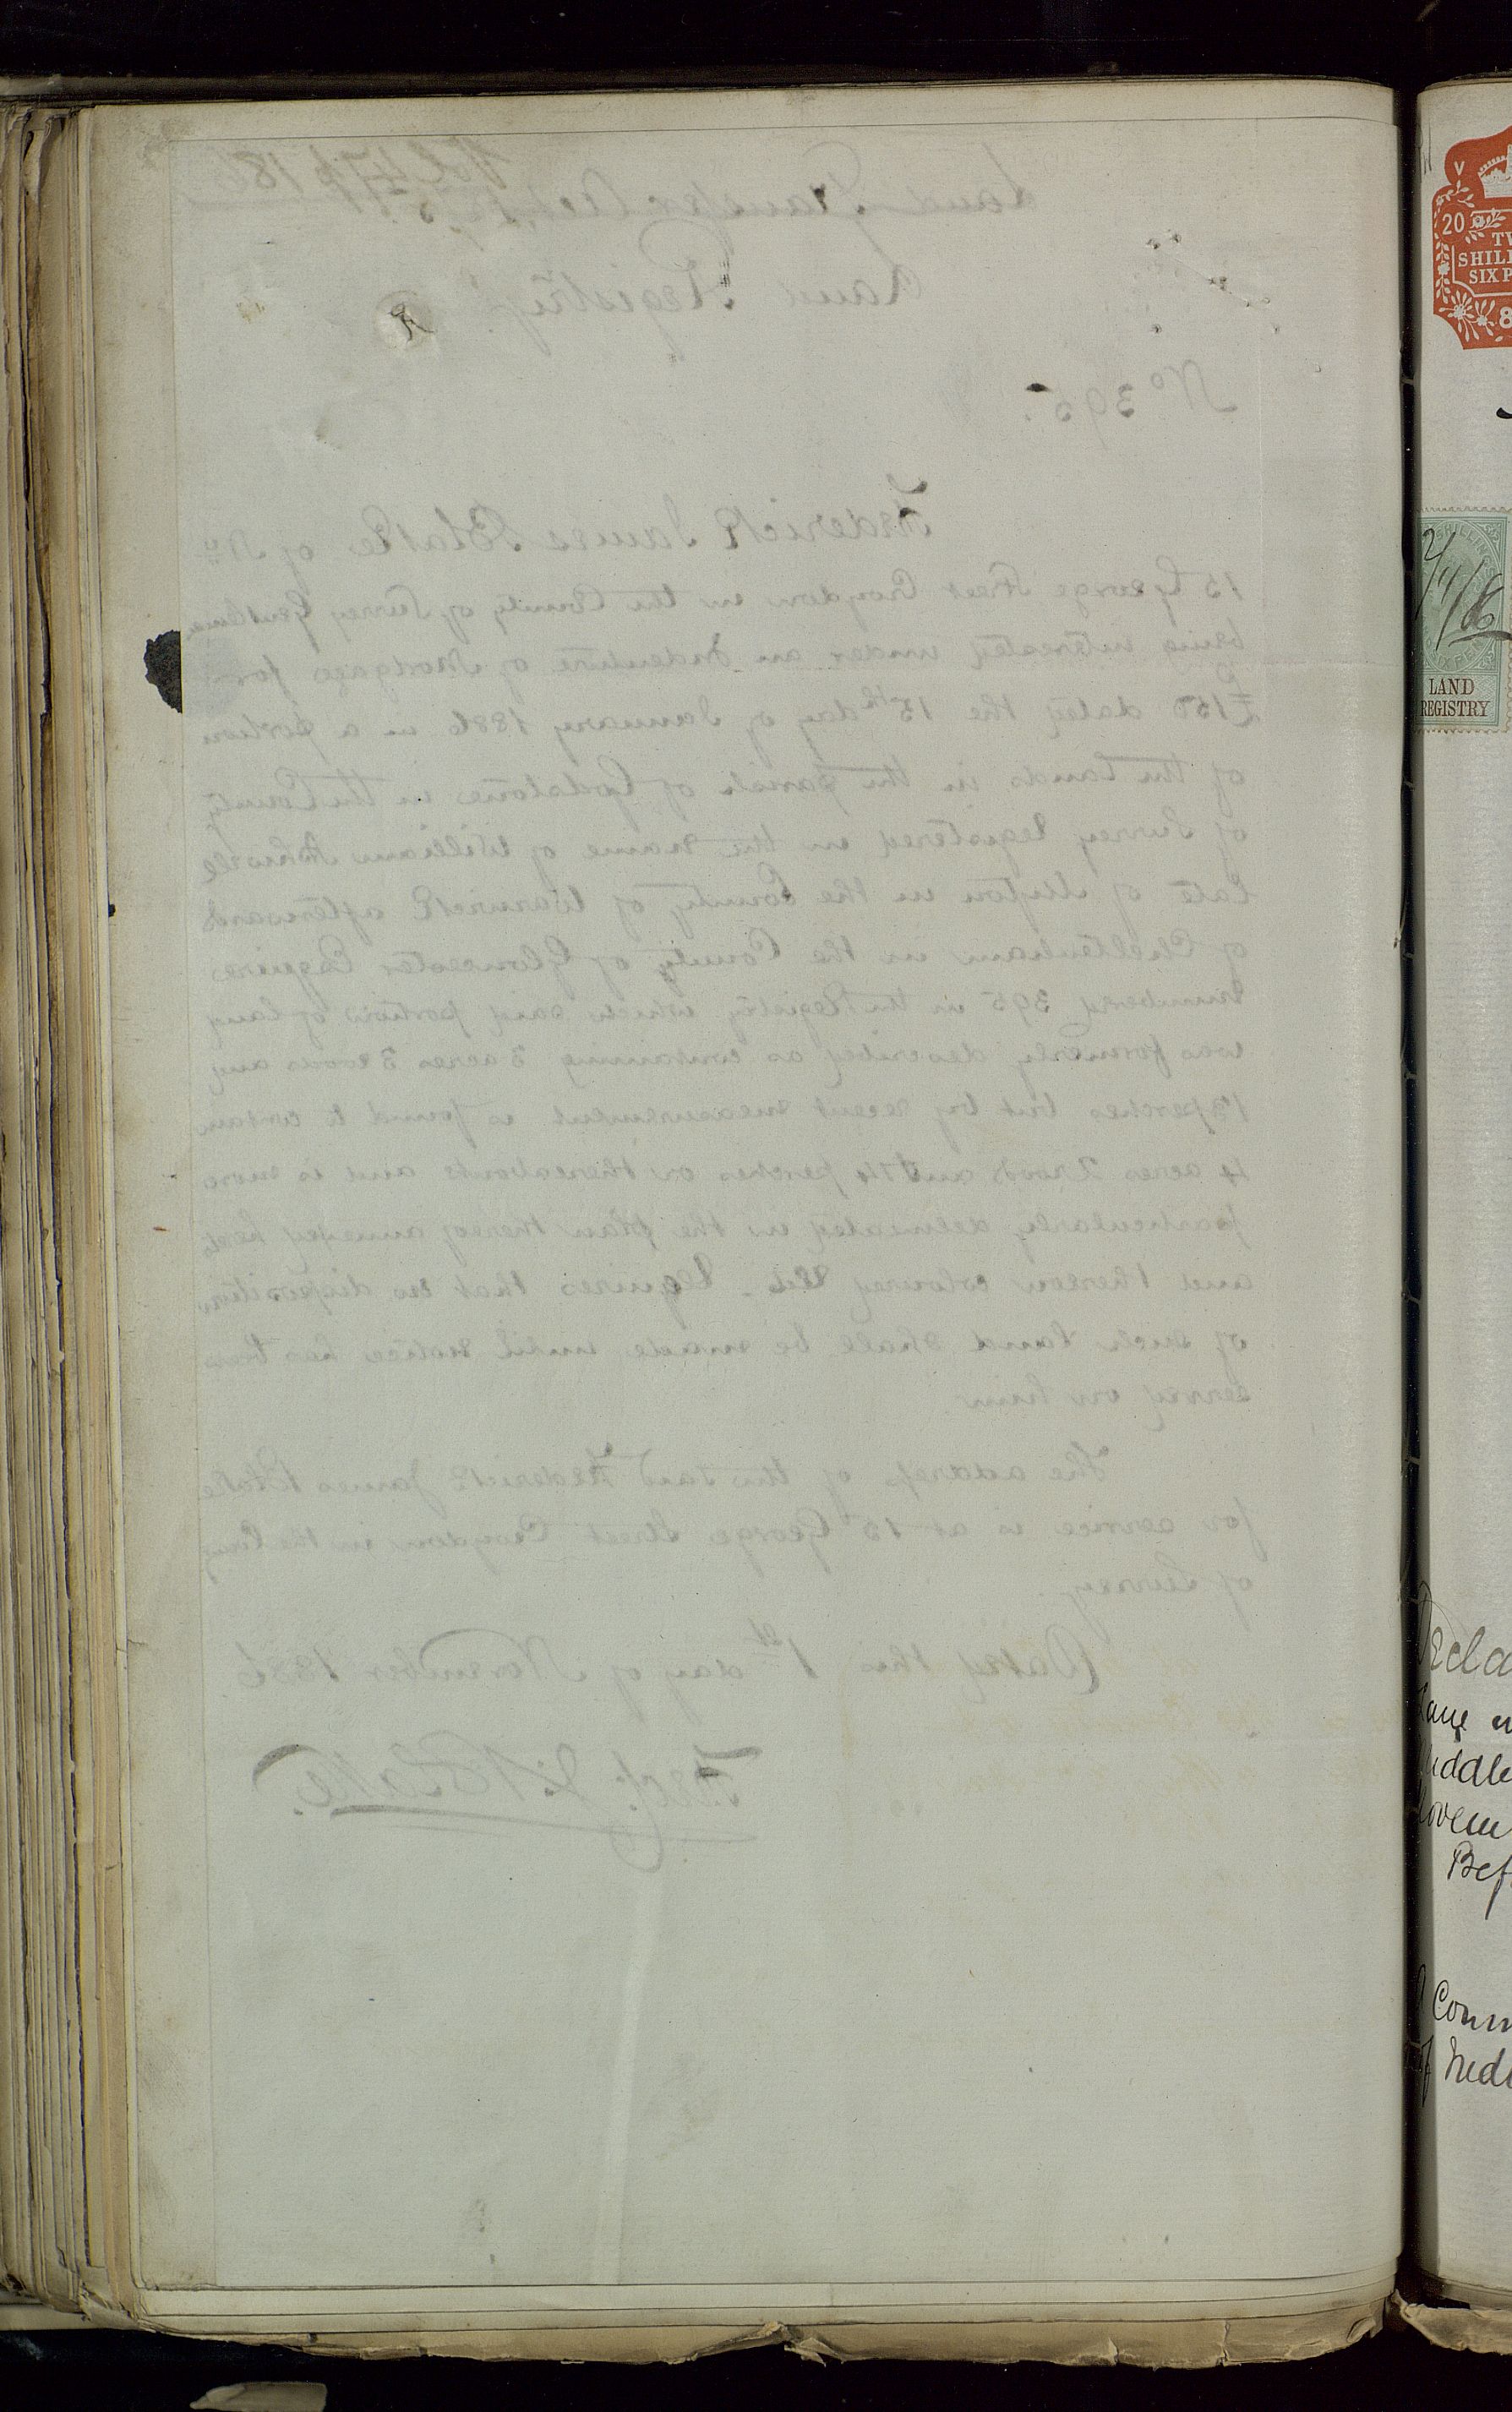 Vol 47 p 186
Land Transfer Act, 1875
Land Registry
No 395.
Frederick James Blake of No
15 George Street Croydon in the County of Surrey Gentleman
being interested under an Indenture of Mortgage for
£150 dated the 15th day of January 1886 in a portion
of the lands in the parish of Godstone in the County
of Surrey registered in the name of William
late of in the County of Warwick afterwards
of Cheltenham in the County of Gloucester Esquire
numbered 395 in the Registry which said portion of land
was formerly described as containing 3 acres 3 roods and
perches but by recent measurement is found to contain
4 acres 2 roods and 14 perches or thereabouts and is more
particularly delineated in the plan thereof annexed hereto
and thereon coloured Red - Requires that no disposition
of such land shall be made until notice has been
served on him
The address of the said Frederick James Blake
for service is at 15 George Street Croydon in the County
of Surrey.
Dated this 1st day of November 1886
Fredk. J. Blake.
20
V
TW
SHILL
SIX P
8
SHILLINGS
SIXPENCE
LAND
REGISTRY
Decla
iddle
ovem
Bef
Comm
of Midd